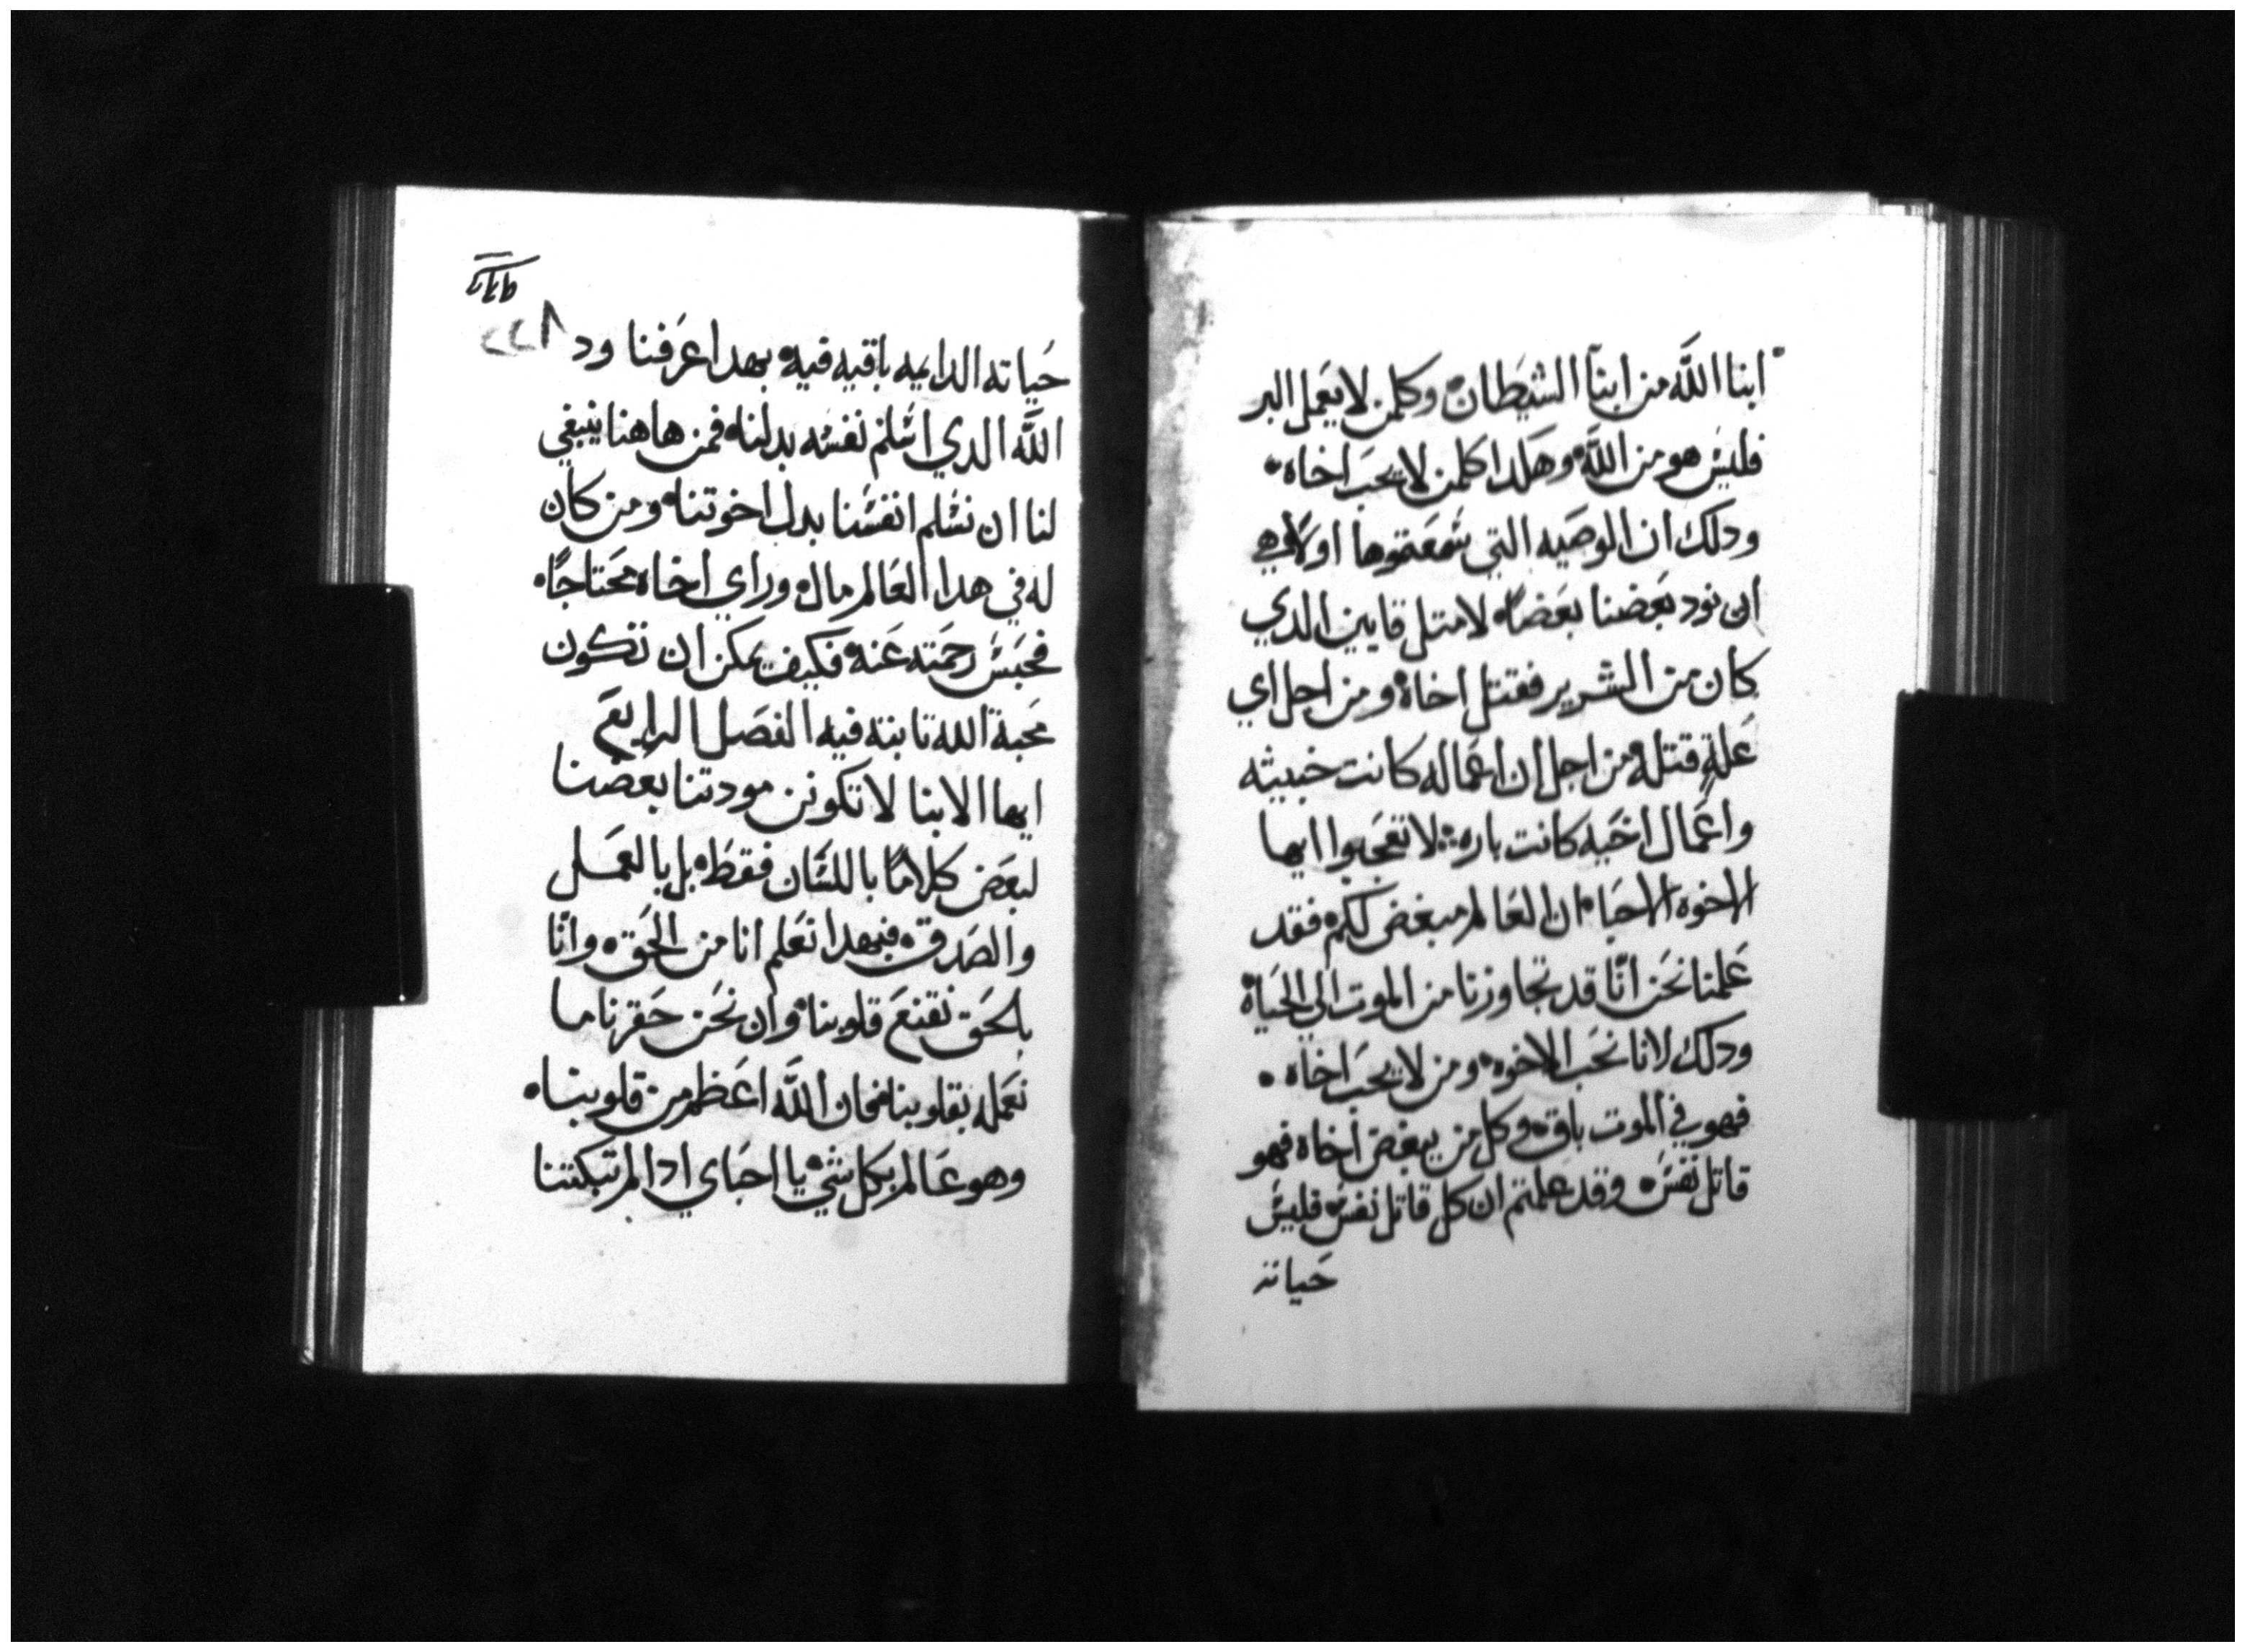 ابنا اللَّه من ابنآ الشيَطان۰ وكلمن لا يَعمل البر
فليسَ هو من اللَّه۰ وهَكدا كلمن لا يحبَ اخاه۰
ودلك ان الوصَيه التي سَمعَتموها اولا۰ هي
ان نود بعَضنا بعَضاً۰ لا متل قايين الدي
كان من الشرير فقتل اخاه۰ ومن اجل اي
عَلةٍ قتله۰ من اجل ان اعَماله كانت خبيثه
واعَمال اخَيه كانت باره۰ لا تعجَبوا ايها
الاخوه الاحبَا۰ ان العَالم مبغض لكم۰ فقد
عَلمنا نحَن انَّا قد تجاوزنا من الموت الي الحيَاة
ودلك لانا نحَب الاخوه۰ ومن لا يحبَ اخاه۰
فهو في الموت باق۰ وكل من يبغض اخاه فهو
قاتل نفسَ۰ وقد عَلمتم ان كل قاتل نفس۰ فليسَ
حَياته
حَياته الدايمه باقيه فيه۰ بهدا عرَفنا ود
اللَّه الدي اسَلم نفسَه بدلنا۰ فمن هاهنا ينبغي
لنا ان نسَلم انفسَنا بدل اخوتنا۰ ومن كان
له في هدا العَالم مال۰ وراي اخاه محَتاجًا۰
فحبَسَ رحَمته عَنه۰ فكيف يمكن ان تكون
محَبة اللَّه تابته فيه الفصَل الرابعَ
ايها الابنا لا تكونن مودتنا بعضَنا
لبعَض كلامًا باللسَان فقطَ۰ بل بالعمَل
والصَدق۰ فبهدا نعَلم انا من الحَق۰ وانَّا
بالحَق نقنعَ قلوبنا۰ وان نحَن حَقرنا ما
نعَمله بقلوبنا۰ فان اللَّه اعَظم من قلوبنا۰
وهو عَالم بكل شي۰ يا احبَاي ادا لم تبكتنا